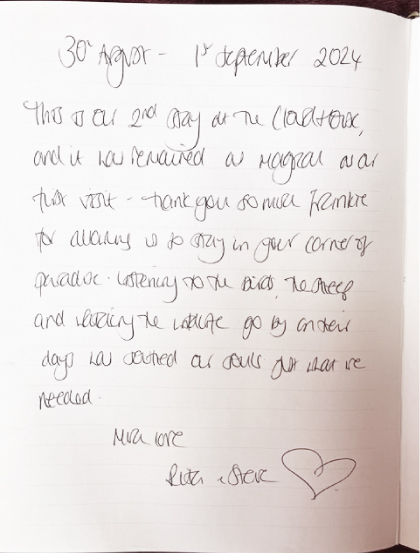 30th August - 1st September 2024
This is our 2nd stay at the
and it has remained as magical as our
first visit - thank you so much Frankie
for allowing us to stay in your corner of
paradise. Listening to the birds, the sheep
and watching the wildlife go by on their
days has soothed our souls just what we
needed.
Much love
& Steve